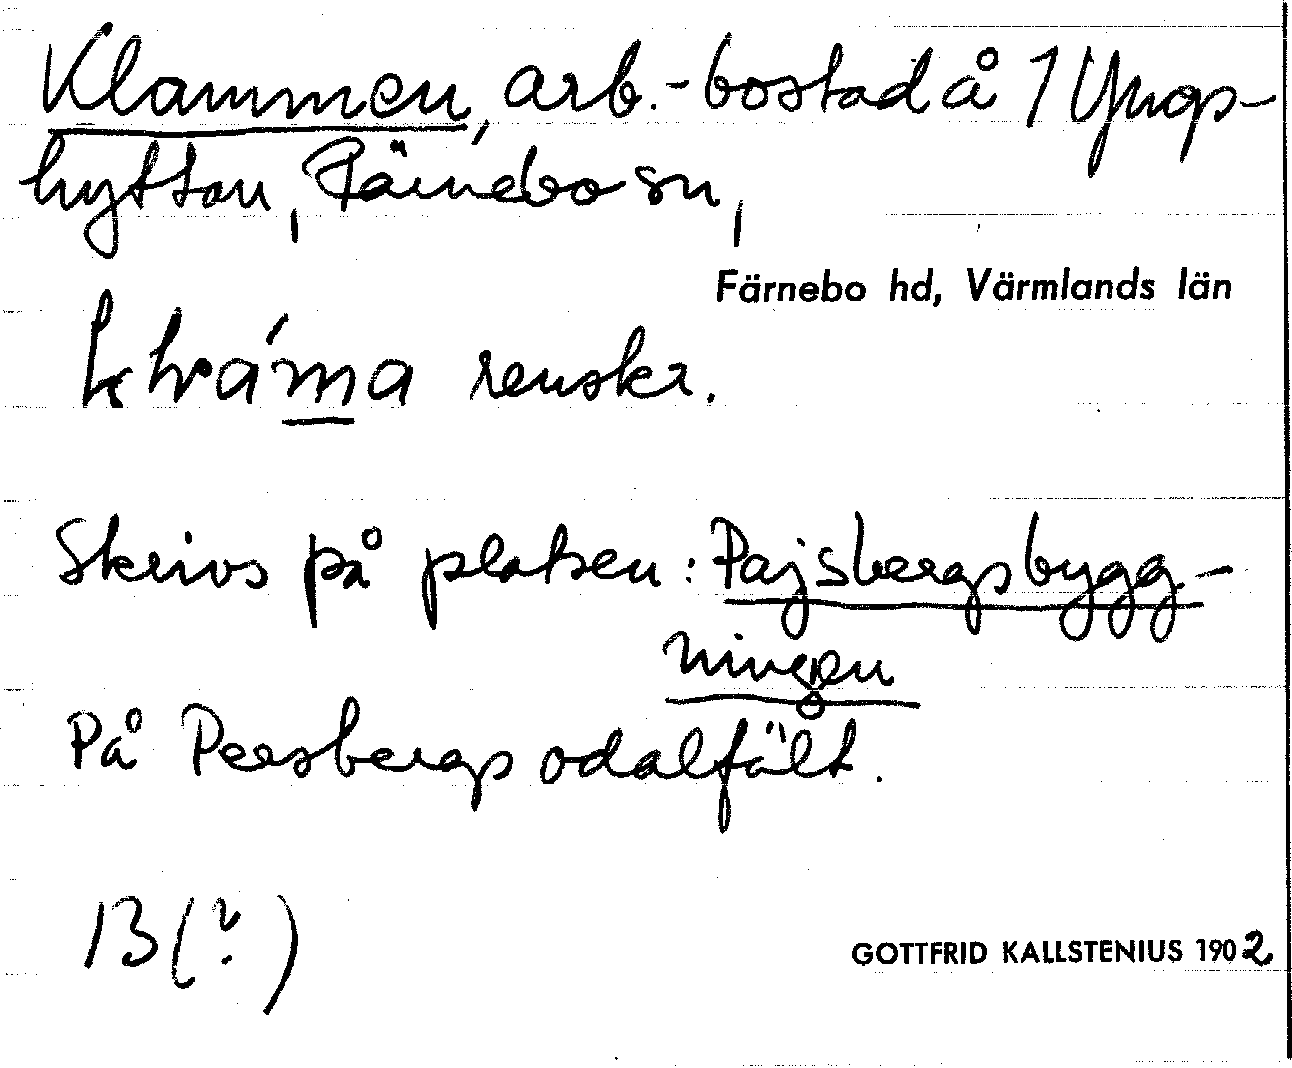 Klammen, arb.-bostad å 1 Yngs-
hyttan, Färnebo sn,
Färnebo hd, Värmlands län
renskr.
Skrivs på platsen: Pajsbergsbygg-
ningen
På Persbergs odalfält.
13 (?)
GOTTFRID KALLSTENIUS 1902